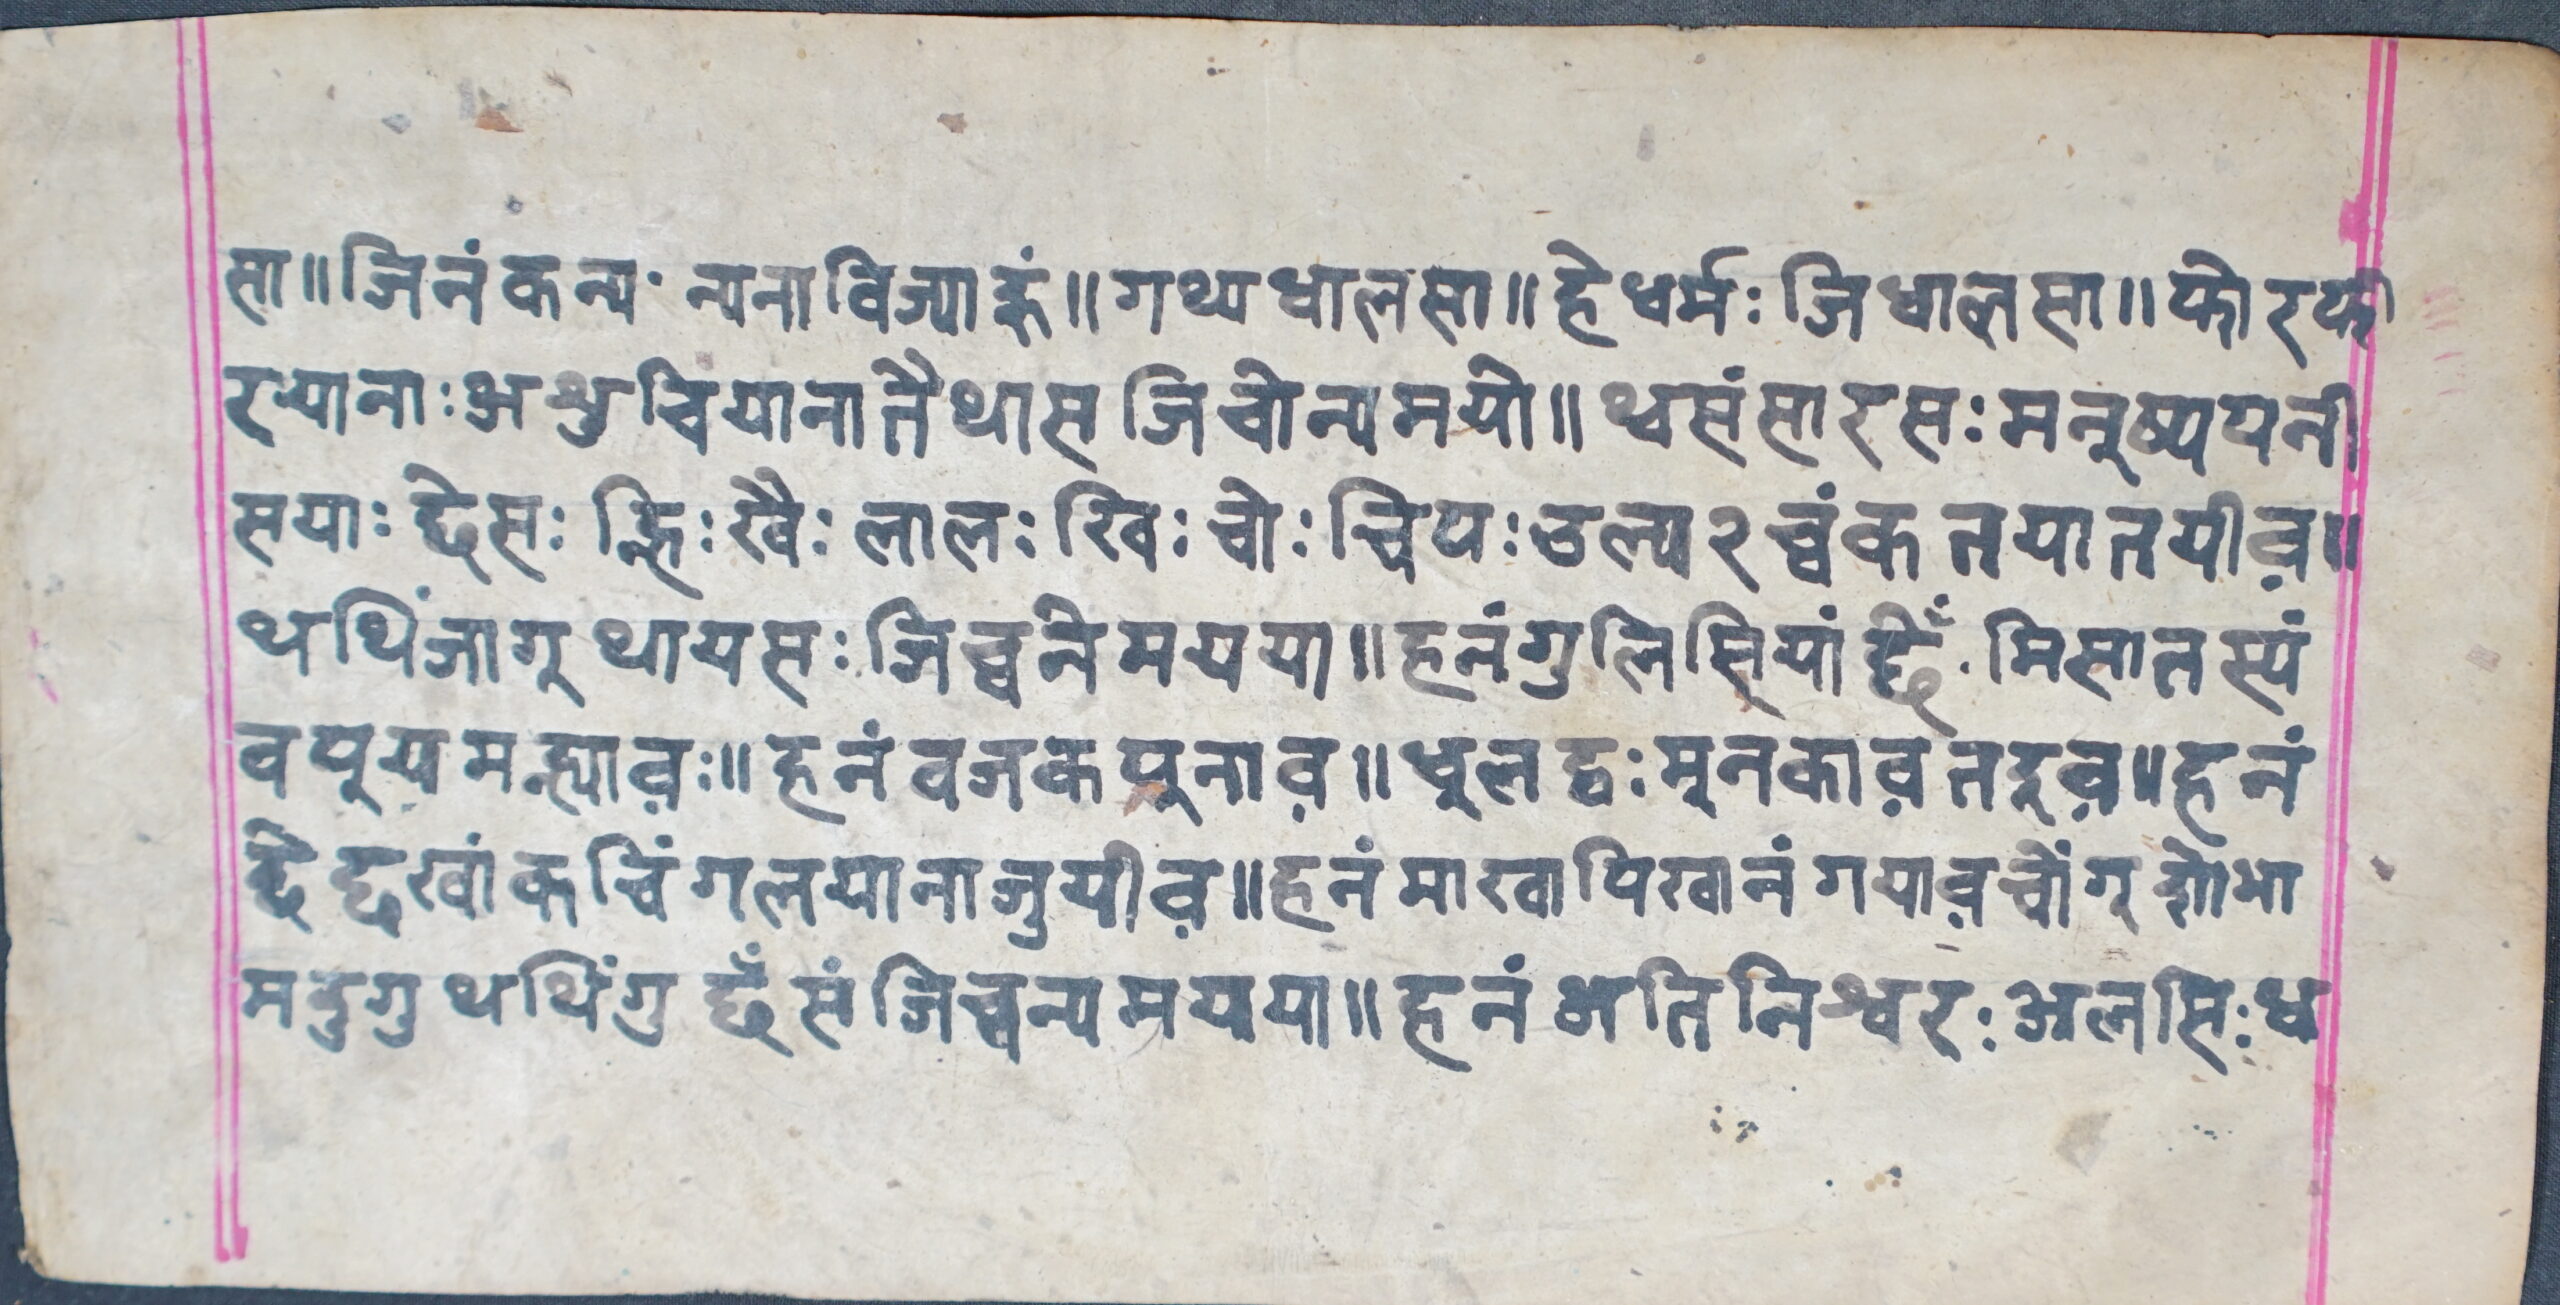 सा॥जिनं कन्य॰ न्यना विज्या हुं॥गथ्य धालसा॥हे धर्मः जि धालसा॥फोर फो
र यानाः अशुचि याना तै थास जि चोन्य मयो॥थ्व संसारसः मनूष्य यनी
सयाः द्देसः ह्निः खैः लालः खिः चोः च्विपः उल्य २ च्वंक तया तयीव॥
थथिं जागू थायसः जि च्वने मयया॥हनं गुलिसियां द्छेँ॰ मिसातस्यं
वपूय मह्यावः॥हनं वजक पूनाव॥धूल द्वः मूनकाव तदूव॥हनं
द्दे दुखां कचिंगल याना जुयीव॥हनं मा खा पिखा नं गयाव चोंगू शोभा
मदुगु थथिंगु छेँसं जि च्वन्य मयया॥हनं अति निश्वरः अलसिः ध